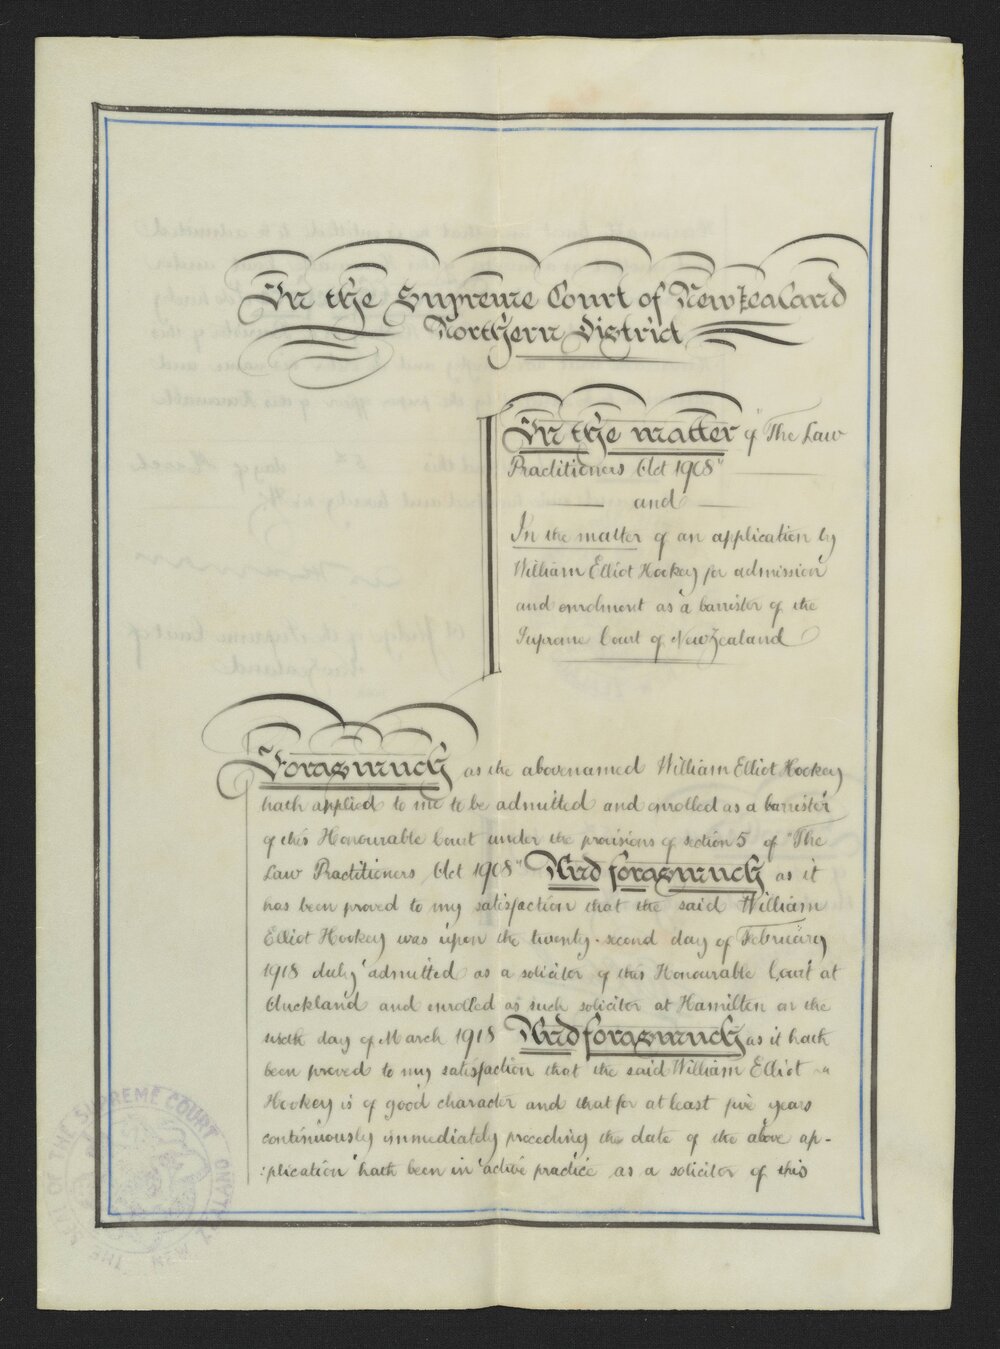 In the Supreme Court of New Zealand
Northern District
In the matter of "The Law
Practitioners Act 1908"
and
In the matter of an application by
William Elliot Hockey for admission
and enrolment as a barrister of the
Supreme Court of New Zealand
Forasmuch as the abovenamed William Elliot Hockey
hath applied to me to be admitted and enrolled as a barrister
of this Honourable Court under the provisions of section 5 of "The
Law Practitioners Act 1908" And forasmuch as it
has been proved to my satisfaction that the said William
Elliot Hockey was upon the twenty-second day of February
1918 duly admitted as a solicitor of this Honourable Court at
Auckland and enrolled as such solicitor at Hamilton on the
sixth day of March 1918 And forasmuch as it hath
been proved to my satisfaction that the said William Elliot
Hockey is of good character and that for at least five years
continuously immediately preceding the date of the above ap-
:plication hath been in active practice as a solicitor of this
THE SEAL OF THE SUPREME COURT
NEW ZEALAND